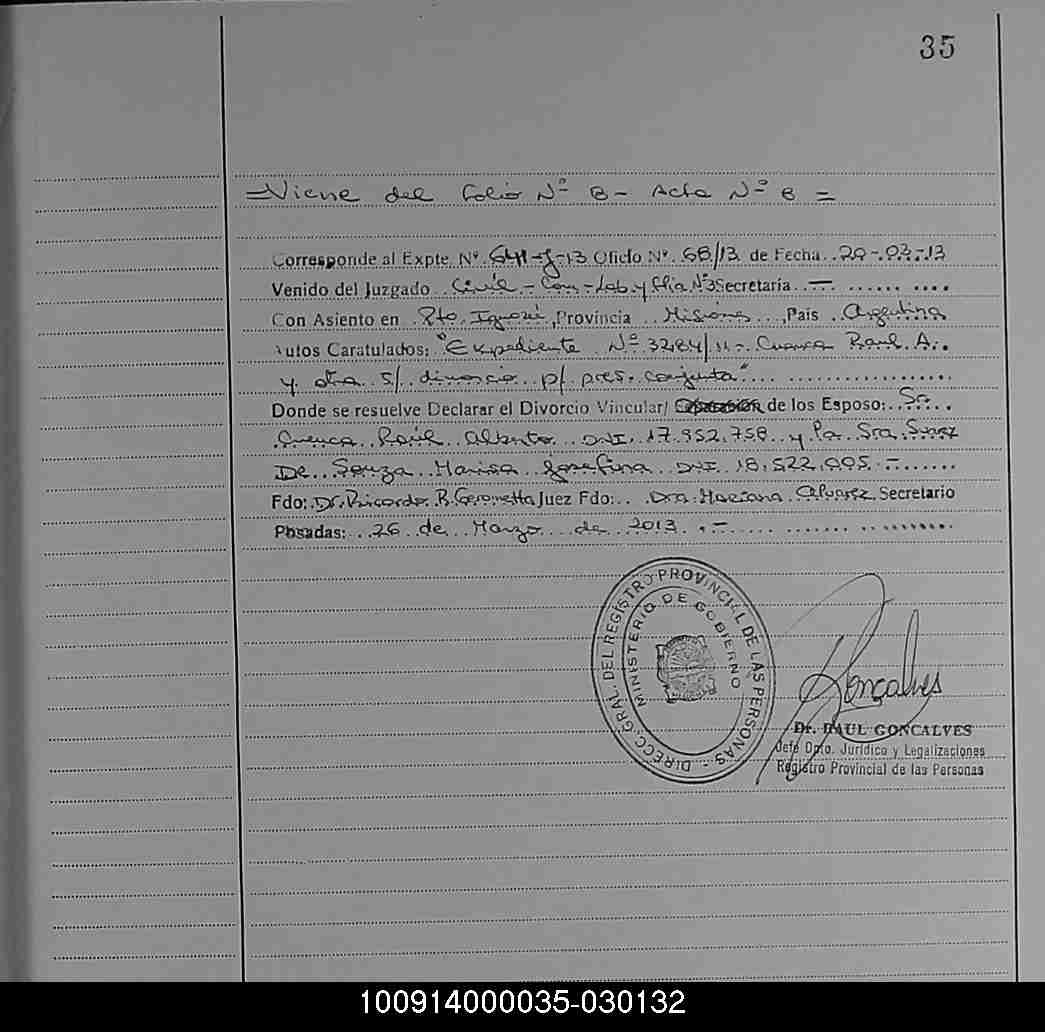 35
=Viene del Folio Nº 8 - Acta Nº 8 =
Corresponde al Expte. Nº. 641-J-13 Oficio Nº. 68/13 de Fecha. 20-.03-.13
Venido del Juzgado Civil - Com - Lab. y Flia Nº3 Secretaría. —
Con Asiento en Pto. Iguazú, Provincia Misiones, País Argentina
Autos Caratulados: "Expediente Nº 3284/11 - Cuenca Raul A.
y otra s/ divorcio p/ pres. conjunta"
Donde se resuelve Declarar el Divorcio Vincular/ de los Esposo: Sr.
Cuenca Raúl Alberto DNI. 17.952.758 y la Sra. Suarez
De Souza Marisa Josefina DNI 18.522.005.-
Fdo: Dr. Ricardo R. Gerometta Juez Fdo: Dra. Mariana Alvarez Secretario
Posadas: 26 de Marzo de 2013.-
DIRECC. GRAL. DEL REGISTRO PROVINCIAL DE LAS PERSONAS -
MINISTERIO DE GOBIERNO
Gonçalves
Dr. RAUL GONCALVES
Jefe Dpto. Jurídico y Legalizaciones
Registro Provincial de las Personas
100914000035-030132